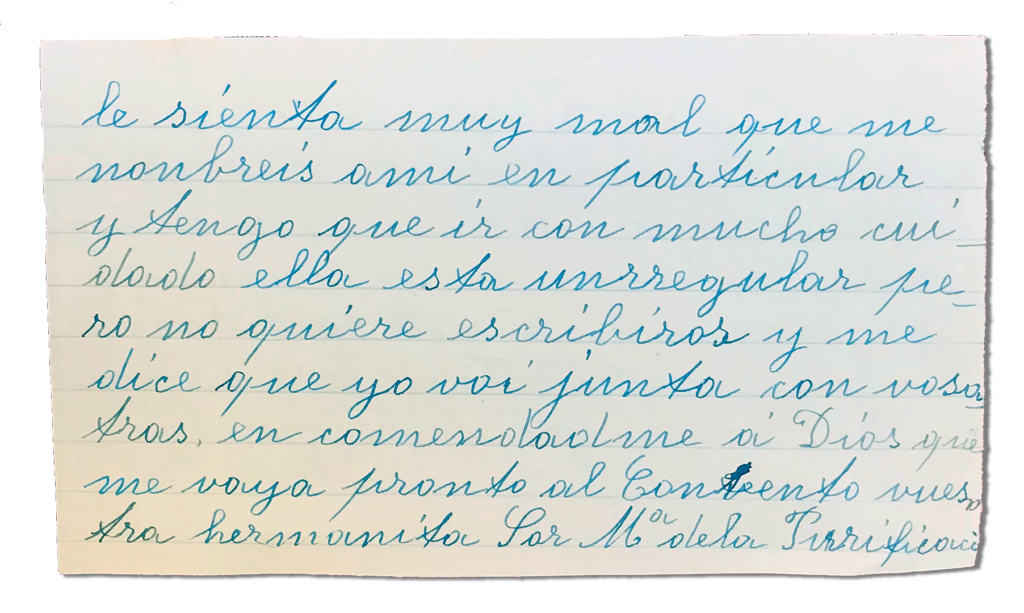 le sienta muy mal que me
nonbreis ami en particular
y tengo que ir con mucho cui_
dado ella esta unrregular pe_
ro no quiere escribiros y me
dice que yo voi junta con voso_
tras, en comendadme a Dios que
me vaya pronto al Convento vues
tra hermanita Sor Mª dela Purrificaci